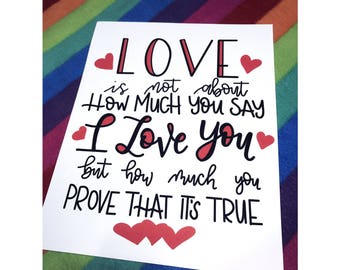 LOVE
is not about
HOW MUCH YOU SAY
I Love You
but how much you
PROVE THAT IT'S TRUE